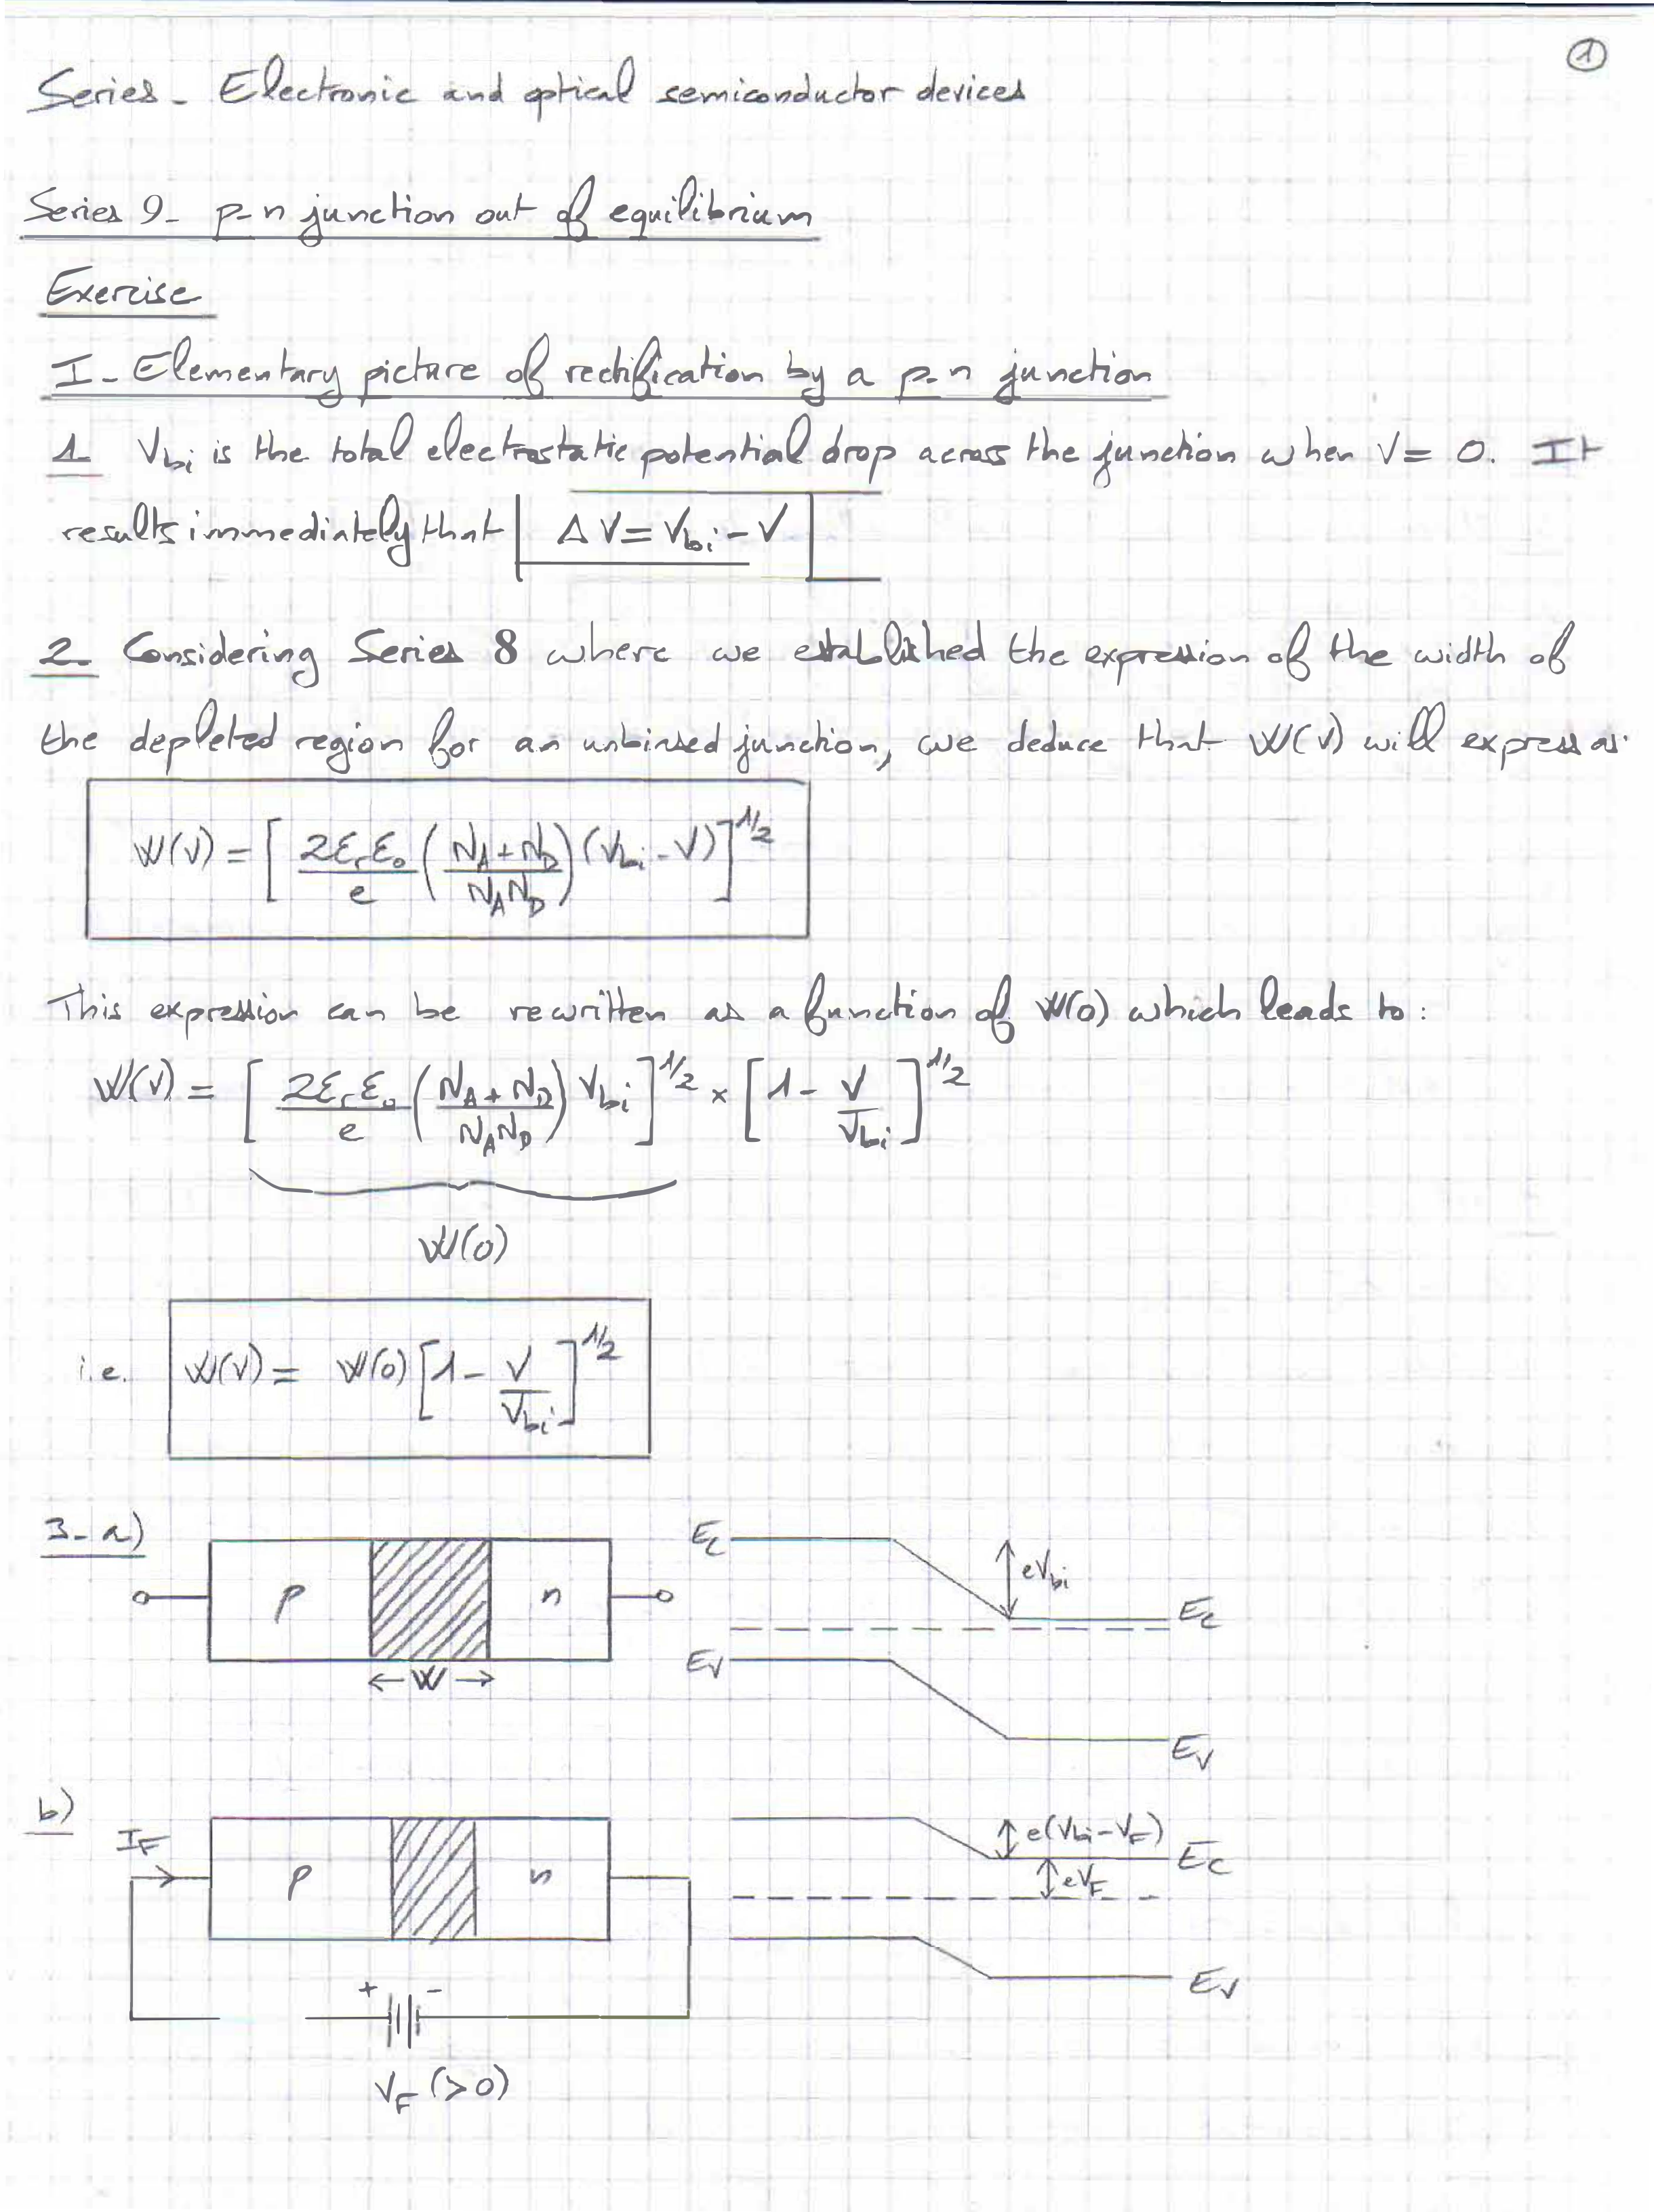 ①
Series - Electronic and optical semiconductor devices
Series 9 - p-n junction out of equilibrium
Exercise
I - Elementary picture of rectification by a p-n junction
1- V_bi is the total electrostatic potential drop across the junction when V = 0. It
results immediately that ΔV = V_bi - V
2- Considering Series 8 where we established the expression of the width of
the depleted region for an unbiased junction, we deduce that W(V) will express as:
W(V) = [ 2ε_r ε_0 / e ( N_A + N_D / N_A N_D ) (V_bi - V) ]^1/2
This expression can be rewritten as a function of W(0) which leads to:
W(V) = [ 2ε_r ε_0 / e ( N_A + N_D / N_A N_D ) V_bi ]^1/2 × [ 1 - V / V_bi ]^1/2
W(0)
i.e. W(V) = W(0) [ 1 - V / V_bi ]^1/2
3- a)
p n
← W →
E_C eV_bi E_C
E_V E_V
b)
I_F
p n
+ -
V_F (>0)
e(V_bi - V_F) E_C
eV_F
E_V